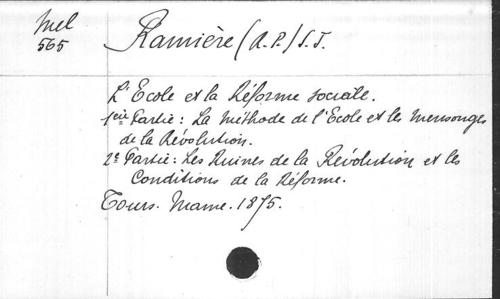 Mel
565
Ramière (R.P.) S.J.
L'Ecole et la Réforme sociale.
1ère Partie: La Méthode de l'Ecole et les Mensonges
de la Révolution.
2e Partie: Les Ruines de la Révolution et les
Conditions de la Réforme.
Tours. Mame. 1875.